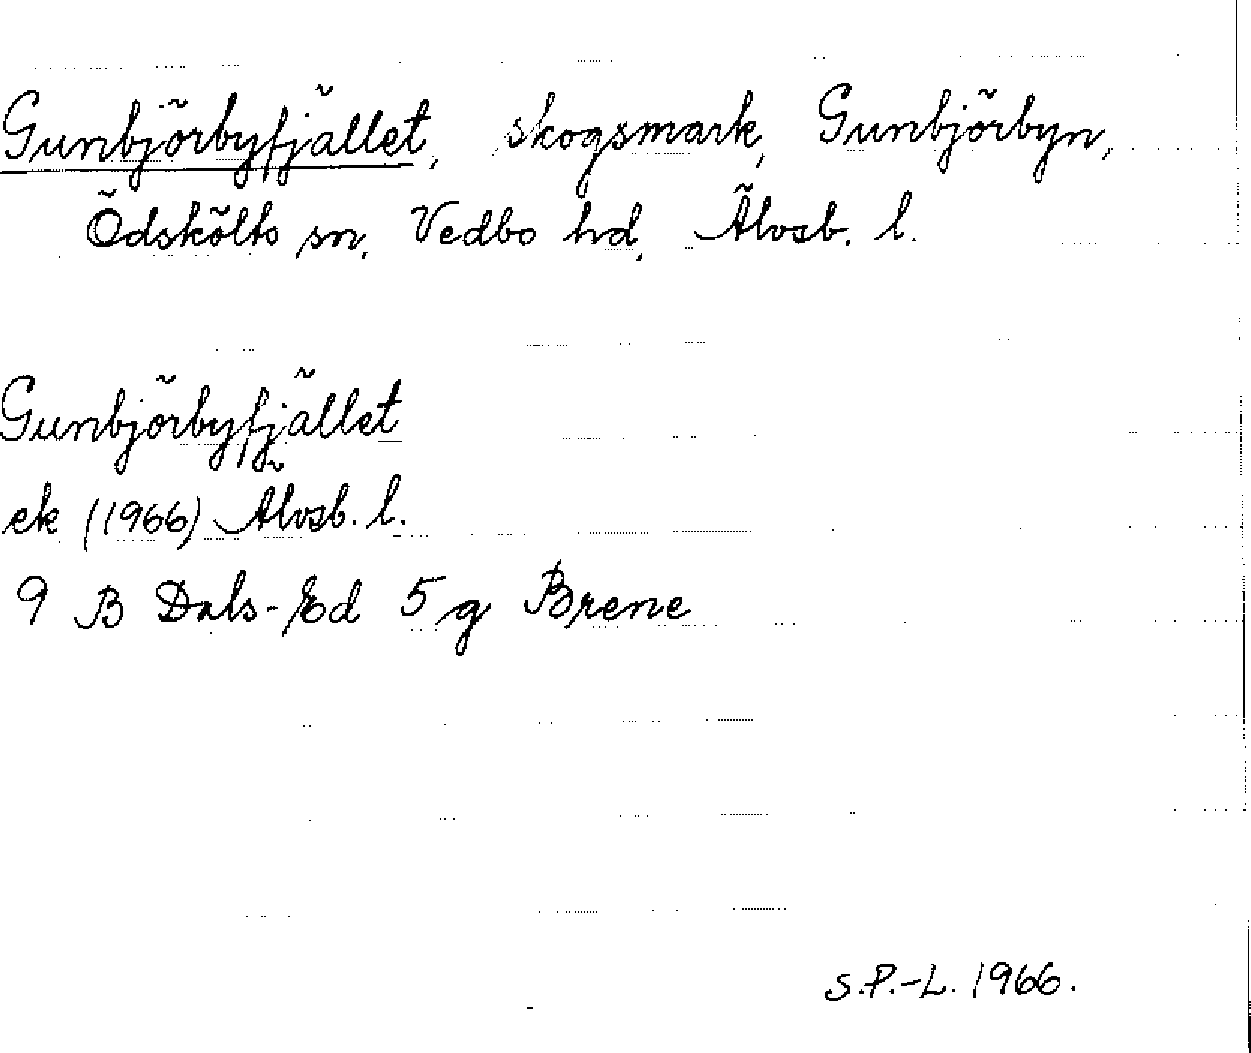 Gunbjörbyfjället, skogsmark, Gunbjörbyn,
Ödskölts sn, Vedbo hd, Älvsb. l.
Gunbjörbyfjället
ek (1966) Älvsb. l.
9 B Dals-Ed 5 g Brene
S.P.-L. 1966.